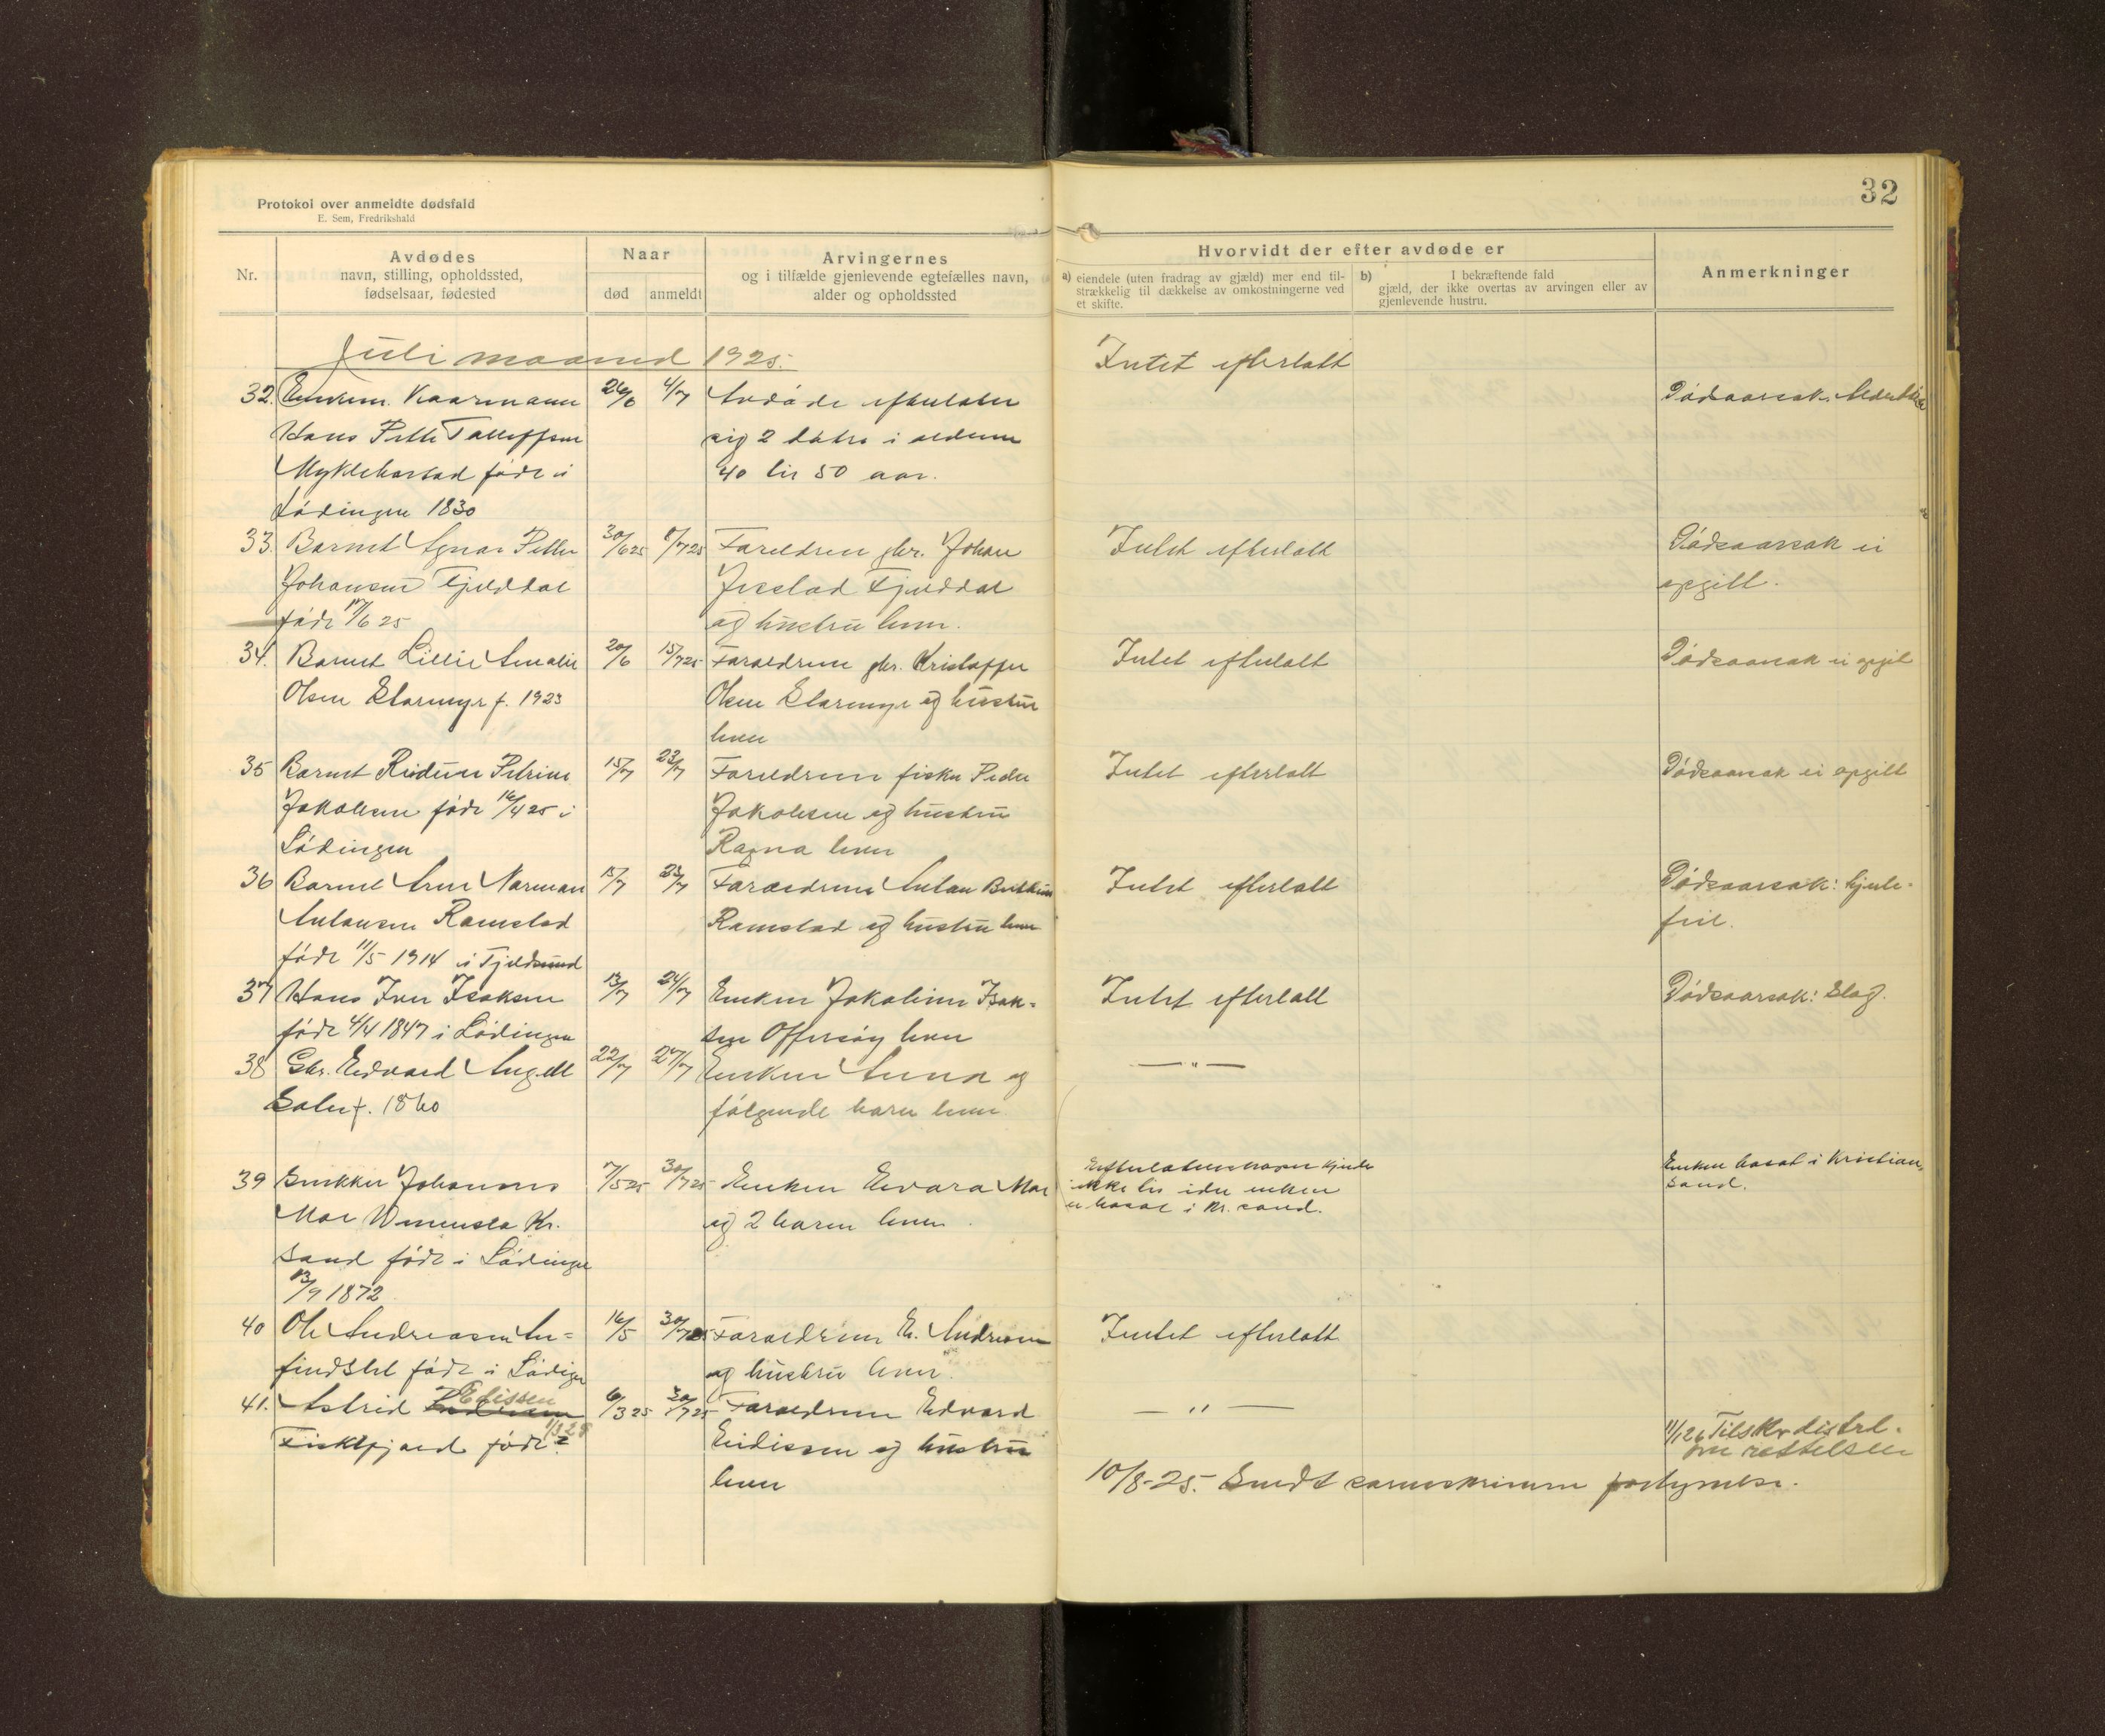 32
Protokol over anmeldte dødsfald
E. Sem, Fredrikshald
Nr.
Avdødes
navn, stilling, opholdssted,
fødselsaar, fødested
Naar
død
anmeldt
Arvingernes
og i tilfælde gjenlevende egtefælles navn,
alder og opholdssted
Hvorvidt der efter avdøde er
a) eiendele (uten fradrag av gjæld) mer end til-
strækkelig til dækkelse av omkostningerne ved
et skifte.
b) I bekræftende fald
gjæld, der ikke overtas av arvingen eller av
gjenlevende hustru.
Anmerkninger
Juli maaned 1925.
32. Kaarmann 26/6 4/7 Avdøde efterlater Intet efterlatt Dødsaarsak:
Hans Petter Tolleffsen sig 2 døtre i alderen
Myklebostad født i 40 til 50 aar.
Lødingen 1830
33. Barnet Agnar Petter 30/6 25 8/7 25 Forældrene gbr. Johan Intet efterlatt Dødsaarsak ei
Johansen Fjelddal Fjelddal opgitt.
født 17/6 25 og hustru lever.
34. Barnet Lillie Amalie 20/6 15/7 25 Forældrene gbr. Kristoffer Intet efterlatt Dødsaarsak ei opgit
Olsen Stormyr f. 1923 Olsen Stormyr og hustru
lever
35 Barnet Reidun Petrine 15/7 23/7 Forældrene fisker Peder Intet efterlatt Dødsaarsak ei opgitt
Jakobsen født 16/4 25 i Jakobsen og hustru
Lødingen Ragna lever
36 Barnet Arne Norman 15/7 23/7 Forældrene Anton Intet efterlatt Dødsaarsak: hjerte-
Antonsen Ramstad Ramstad og hustru lever feil.
født 11/5 1914 i Tjeldsund
37 Hans Iver Isaksen 13/7 24/7 Enken Jakobine Isak- Intet efterlatt Dødsaarsak: Slag.
født 4/4 1847 i Lødingen sen Offersøy lever
38 Gbr. Edvard Angell 22/7 27/7 Enken Anna og — " —
f. 1860 følgende barn lever
39 Snekker Johannes 7/5 25 30/7 25 Enken Moe Efterlatenskaper kjendes Enken bosat i Kristian-
Moe Kr. og 2 barn lever. ikke til idet enken sand.
sand født i Lødingen er bosat i Kr. sand.
13/9 1872
40 Ole Andreasen 16/5 30/7 25 Forældrene Andreasen Intet efterlatt
født i Lødingen og hustru lever.
41. Astrid Edissen 6/3 25 30/7 25 Forældrene Edvard — " —
Fiskfjord født ? 1/3 25 og hustru
lever
11/1 26 Tilskr. distrl.
om rettelsen
10/8-25. Sendt sorenskriveren